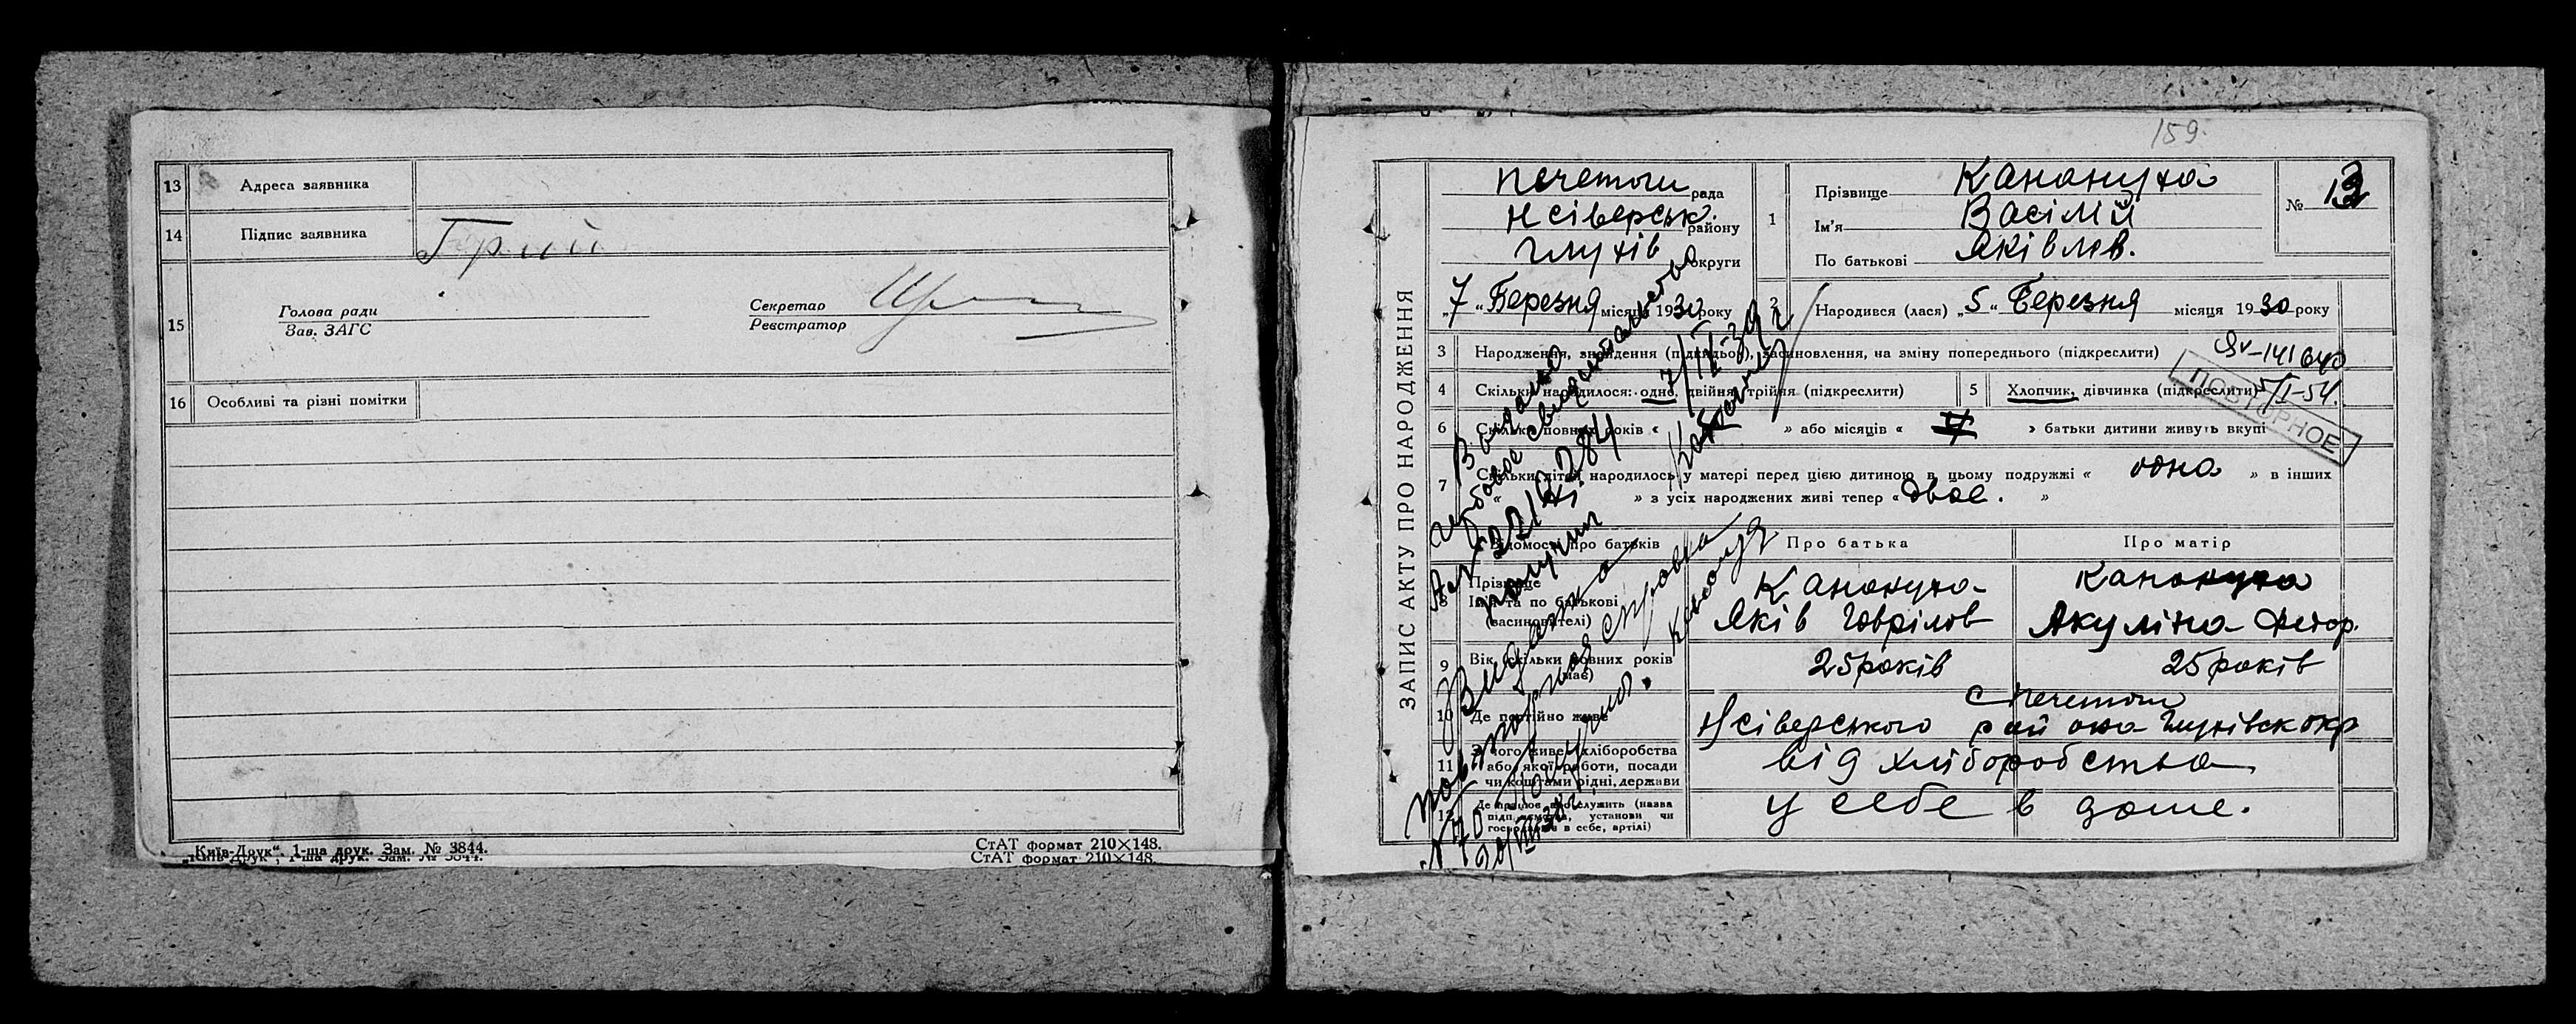 13 Адреса заявника
14 Підпис заявника
15 Голова ради
Зав. ЗАГС
Секретар
Реєстратор
16 Особливі та різні помітки
„Київ-Друк“, 1-ша друк. Зам. № 3844.
СтАТ формат 210×148.
„Київ-Друк“, 1-ша друк. Зам. № 3844.
СтАТ формат 210×148.
159.
ЗАПИС АКТУ ПРО НАРОДЖЕННЯ
рада
Нсіверськ. району
Глухів округи
„7“ Березня місяця 1930 року
1 Прізвище Канануха
Ім'я Васілій
По батькові Яківлев.
№ 13
2 Народився (лася) „5“ Березня місяця 1930 року
3 Народження, знайдення (підкидьок), засиновлення, на зміну попереднього (підкреслити)
4 Скільки народилося: одно, двійня, трійня (підкреслити)
5 Хлопчик, дівчинка (підкреслити)
141640
5/I-54.
ПОВТОРНОЕ
6 Скільки повних років « » або місяців « » батьки дитини живуть вкупі
7 Скільки дітей народилось у матері перед цією дитиною в цьому подружжі « одна » в інших
« » з усіх народжених живі тепер « двое. »
Відомості про батьків
Про батька
Про матір
8 Прізвище
Ім'я та по батькові
(засиновителі)
Канануха
Яків Гаврілов
Канануха
Акуліна Федор.
9 Вік (скільки повних років має)
25 років
25 років
10 Де постійно живе
Нсіверського района Глухівск окр
11 З чого живе: хліборобства
або якої роботи, посади
чи коштами рідні, держави
від хліборобства
12 Де працює або служить (назва
підприємства, установи чи
господарює в себе, артілі)
у себе в доме.
Выдано
гербовое свидетельство
7/IV-39 г
Видана
повторная справка